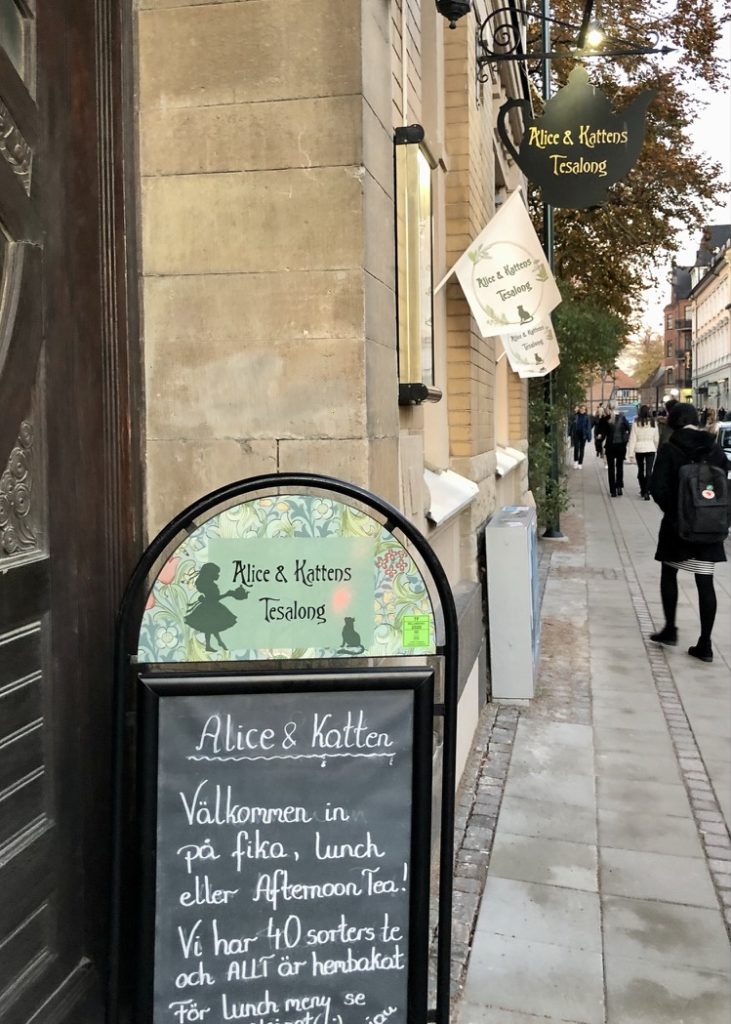 Alice & Kattens
Tesalong
Alice & Kattens
Tesalong
Alice & Kattens
Tesalong
Alice & Kattens
Tesalong
Alice & Katten
Välkommen in
på fika, lunch
eller Afternoon Tea!
Vi har 40 sorters te
och ALLT är hembakat
För lunch meny se